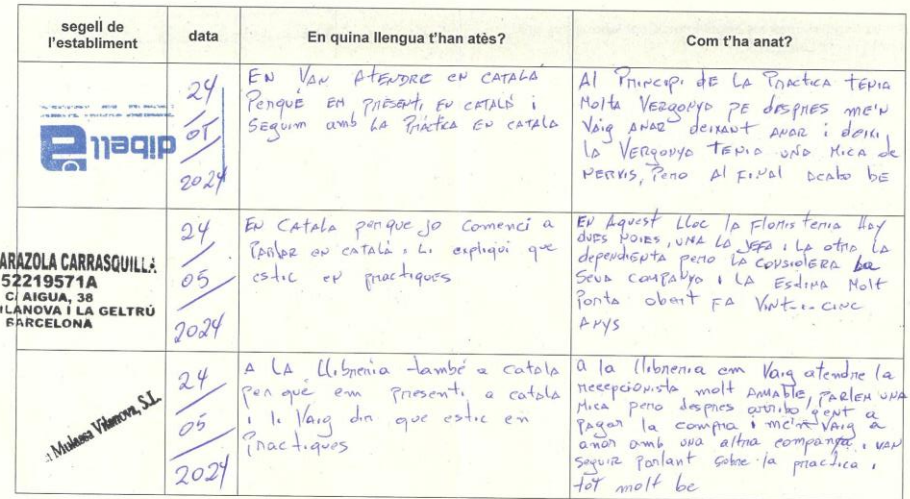 segell de
l'establiment
data
En quina llengua t'han atès?
Com t'ha anat?
dibell
24
05
2024
EN VAN ATENDRE EN CATALÀ
Perquè EM PRESENTI EN CATALÀ i
Seguim amb LA PràctIca EN CATALÀ
Al Principi de LA Practica TENIA
Molta Vergonya pe despres me'n
Vaig ANAR deixant ANAR i deixi
la Vergonya TENIA UNA MICA de
NERVIS, Pero Al FINAL acabo BE
ARAZOLA CARRASQUILLA
52219571A
C/ AIGUA, 38
ILANOVA I LA GELTRÚ
BARCELONA
24
05
2024
EN CATALA perque jo comenci a
Parlar en català i Li expliqui que
estic en practiques
EN Aquest LLoc la Floristeria Hay
dues NOIES, UNA LA JEFA i LA otra LA
dependienta pero LA CONSIDERA La
Seva COMPANYA i LA Molt
Porta obert FA VINT-i-CINC
ANYS
Mulassa Vilanova, S.L.
24
05
2024
A LA Llibreria també a catala
per què em presenti a català
i li Vaig dir que estic en
Practiques
a la llibreria em Vaig atendre la
recepcionista molt AMABLE, PARLEM UNA
MICA pero despres arribo gent a
Pagar la compra i me'n VAIG a
anar amb una altra companya i VAN
seguir Parlant sobre la practica i
tot molt be